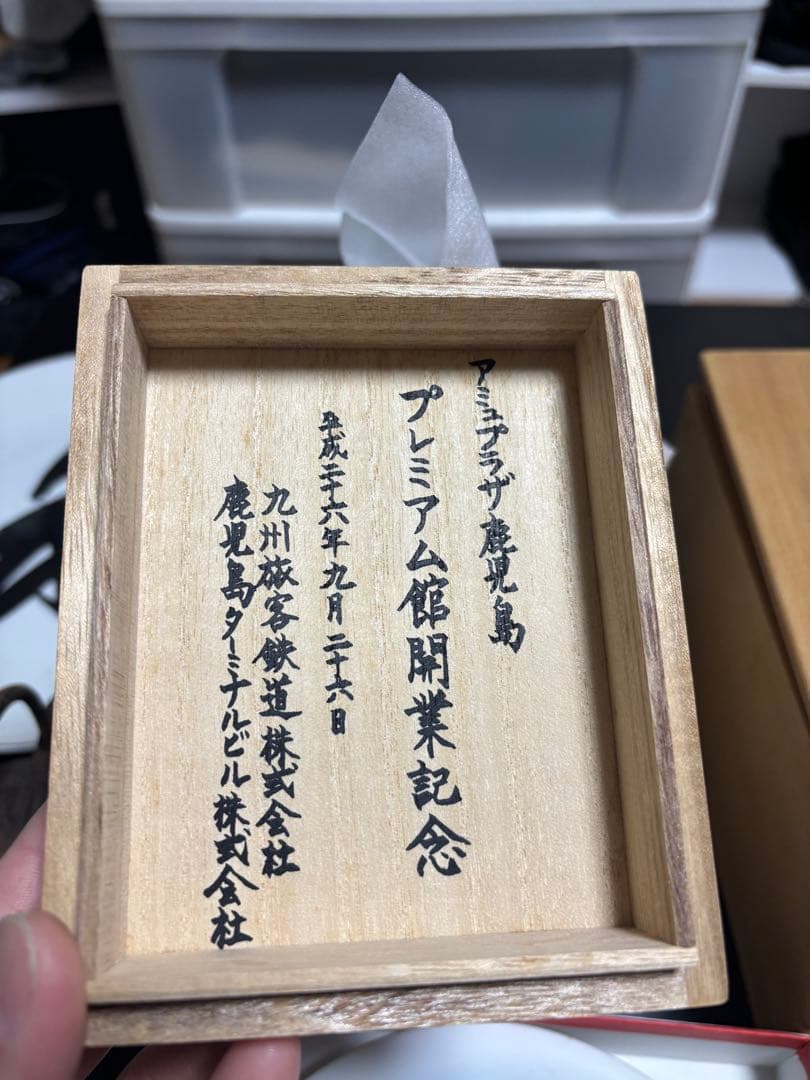 アミュプラザ鹿児島
プレミアム館開業記念
平成二十六年九月二十六日
九州旅客鉄道株式会社
鹿児島ターミナルビル株式会社